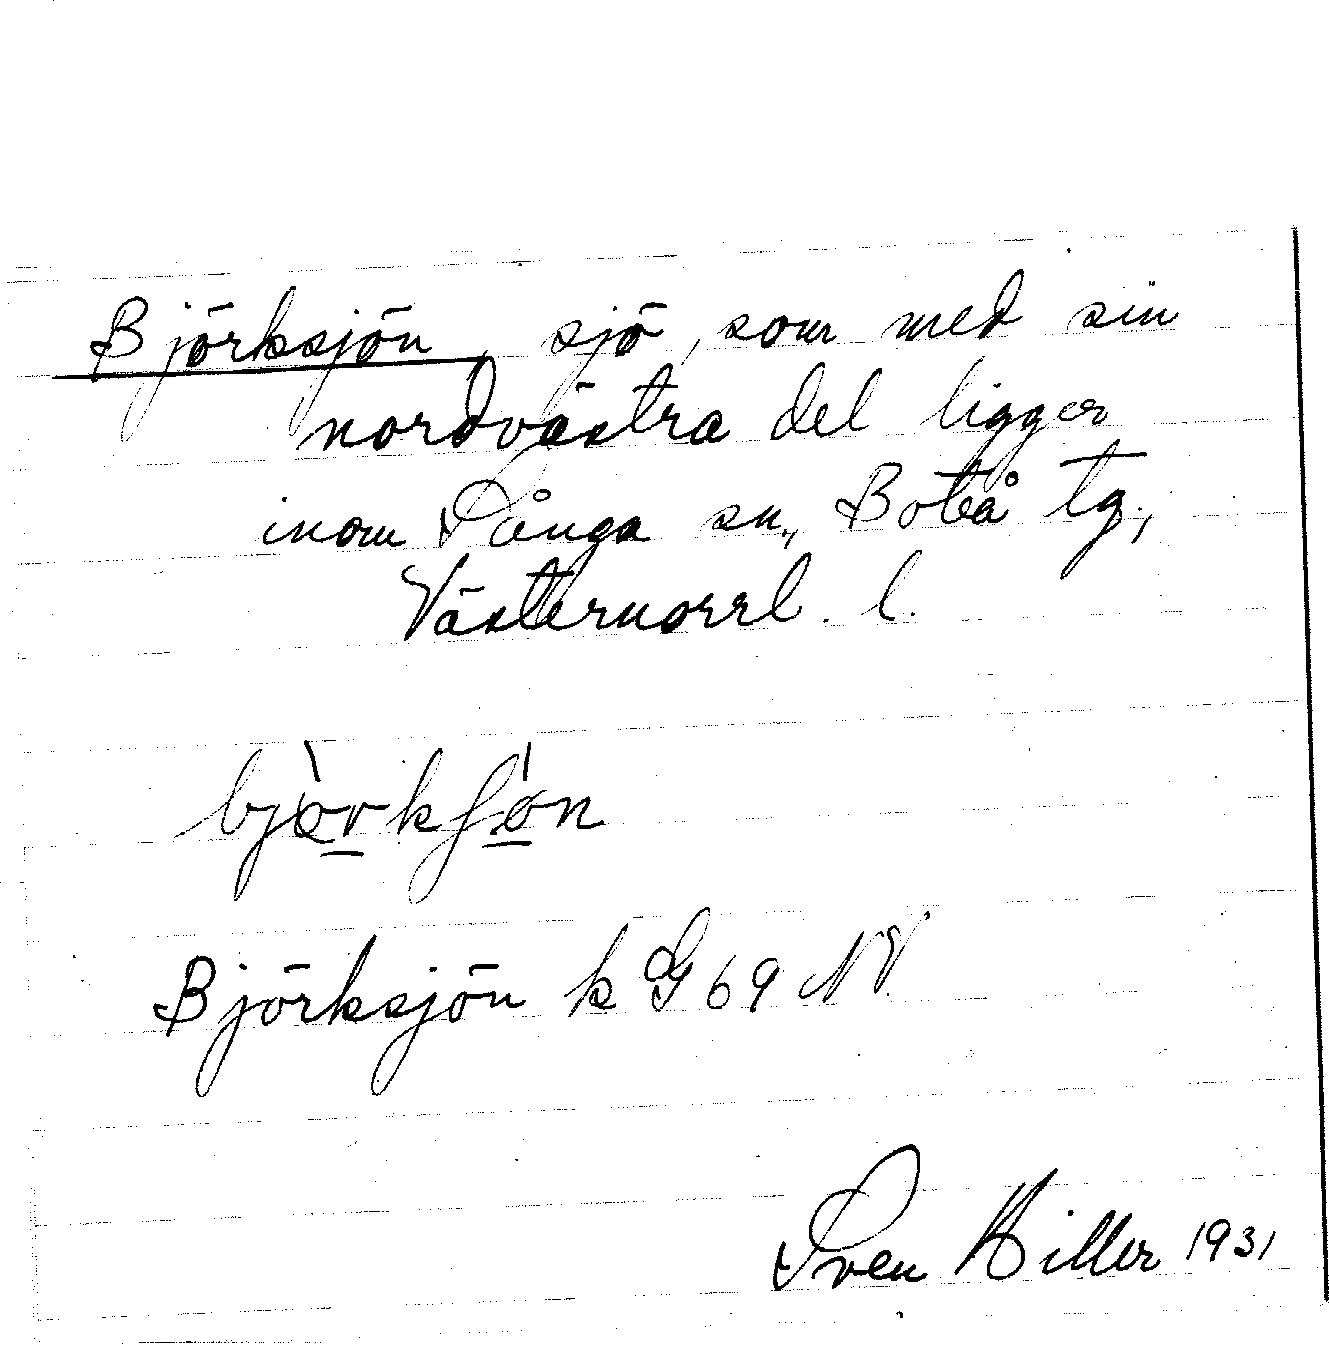 Björksjön, sjö, som med sin
nordvästra del ligger
inom Sånga sn., Boteå tg.,
Västernorrl. l.
Björksjön k G 69 NV.
Sven Hiller 1931